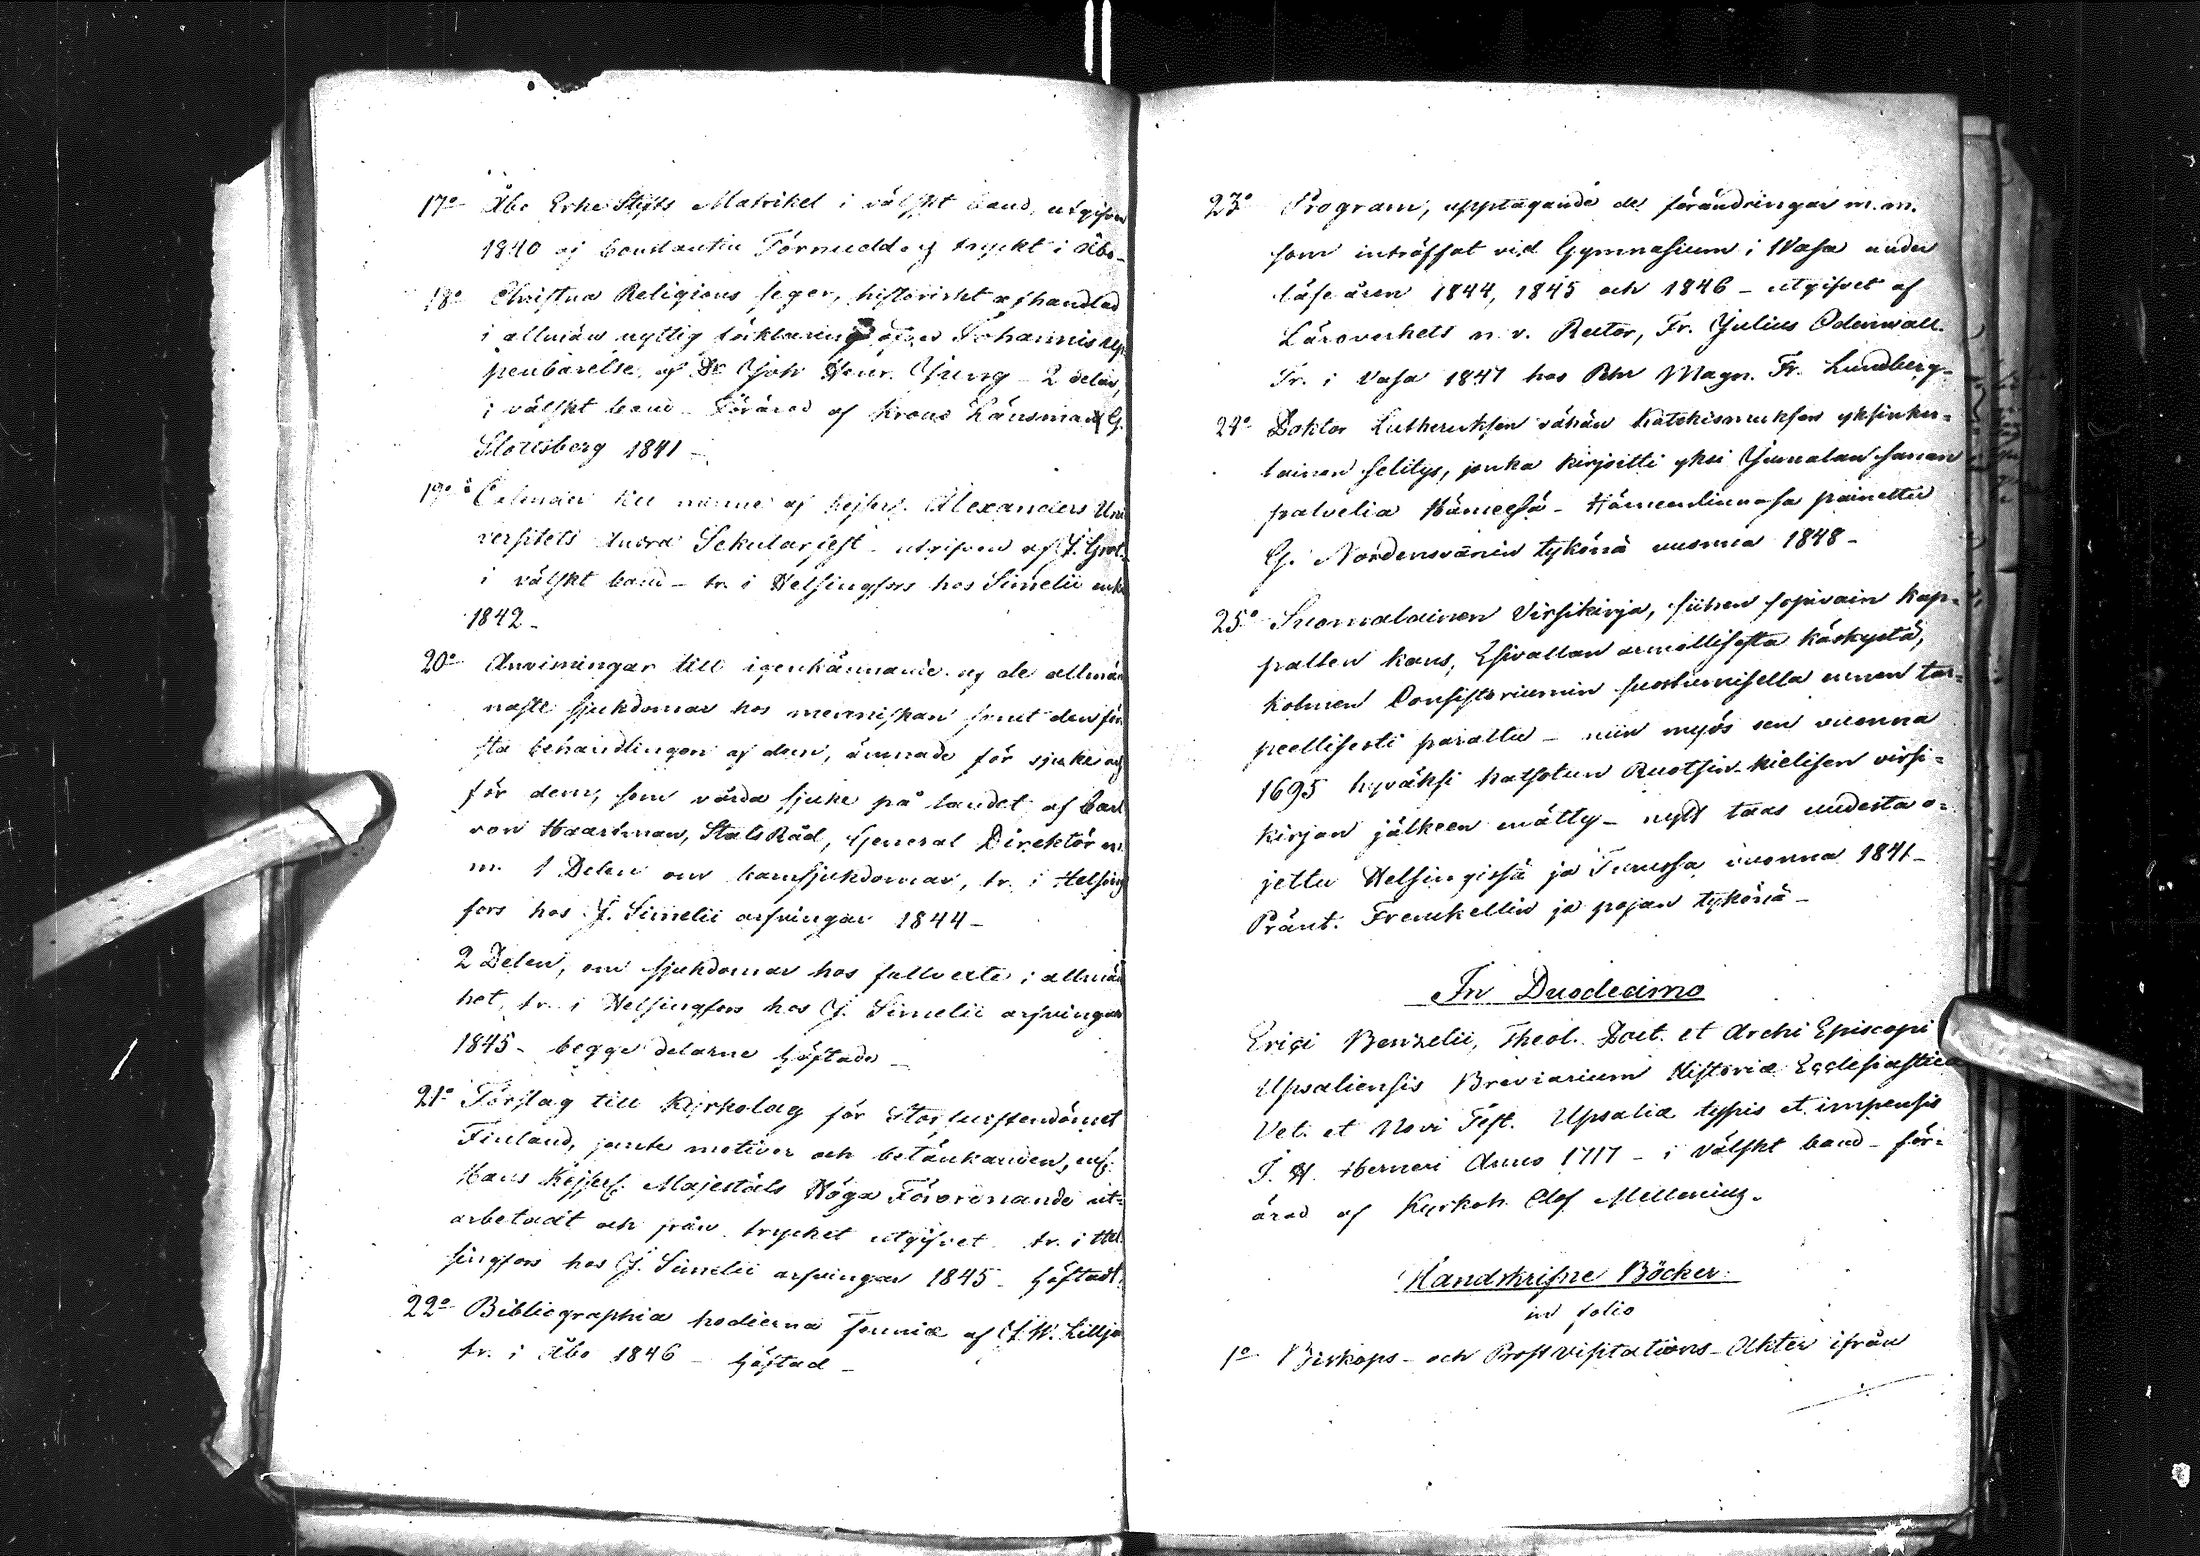 17o Åbo Erke Stifts Matrikel i välskt band, utgifven
1840 af Constantin Törnudd och tryckt i Åbo-
18o Christna Religions seger, historiskt afhandlad
i allmän nyttig förklaring öfver Johannis up-
penbarelse, af Dr Joh Heinr. Jung - 2 delar,
i välskt band - Förärad af Krono Länsman G.
Slottsberg 1841 -
19o Calender till minne af Kejserl. Alexanders Uni
versitets Andra Sekularfest - utgifven af J. Grot -
i välskt band - tr. i Helsingfors hos Simelii enka
1842 -
20o Anvisningar till igenkännande af de allmän
naste sjukdomar hos menniskan samt den för
sta behandlingen af dem, ämnade för sjuke och
för dem, som vårda sjuke på landet af Carl
von Haartman, Stats Råd, General Direktör m.
m. 1 Delen om barnsjukdomar, tr. i Helsing
fors hos J. Simelii arfvingar 1844 -
2 Delen, om sjukdomar hos fullvexte i allmän
het, tr. i Helsingfors hos J. Simelii arfvingar
1845 - begge delarne häftade -
21o Förslag till Kyrkolag för Storfurstendömet
Finland, jemte motiver och betänkanden, enl.
Hans Kejserl. Majestäts Höga Förordnande ut-
arbetadt och från trycket utgifvet tr. i Hel
singfors hos J. Simelii arfvingar 1845 - häftadt.
22o Bibliographia hodierna Fenniæ af J. W. Lillja
tr. i Åbo 1846 - häftad -
23o Program, upptagande de förändringar m.m.
som inträffat vid Gymnasium i Wasa under
läse åren 1844, 1845 och 1846 - utgifvet af
Läroverkets n. v. Rector, Fr. Julius Odenwall.
Tr. i Vasa 1847 hos Pehr Magn. Fr. Lundberg -
24o Doktor Lutheruksen vähän Katekismuksen yksinker-
tainen selitys, jonka kirjoitti yksi Jumalan sanan
palvelia Hämeesä - Hämeenlinnasa painettu
G. Nordensvanin tykönä vuonna 1848 -
25o Suomalainen Virsikirja, siihen sopivain kap-
palten kans, Esivallan armollisesta käskystä,
kolmen Consistoriumin suostumisella ennen tar-
peellisesti parattu - niin myös sen vuonna
1695 hyväksi katsotun Ruotsin-kielisen virsi-
kirjan jälkeen enätty - nyt taas uudesta o-
jettu Helsingissä ja Turussa vuonna 1841 -
Pränt. Frenkellin ja pojan tykönä -
In Duodecimo
Erici Benzelii, Theol. Doct. et Archi Episcopi
Upsaliensis Breviarium Historiæ Ecclesiasticæ
Vet. et Novi Test. Upsaliæ typis et impensis
J. H. Werneri Anno 1717 - i välskt band - för-
ärad af Kyrkoh. Olof Mellenius.
Handskrifne Böcker.
in folio
1o Biskops- och Prost Visitations-Akter ifrån